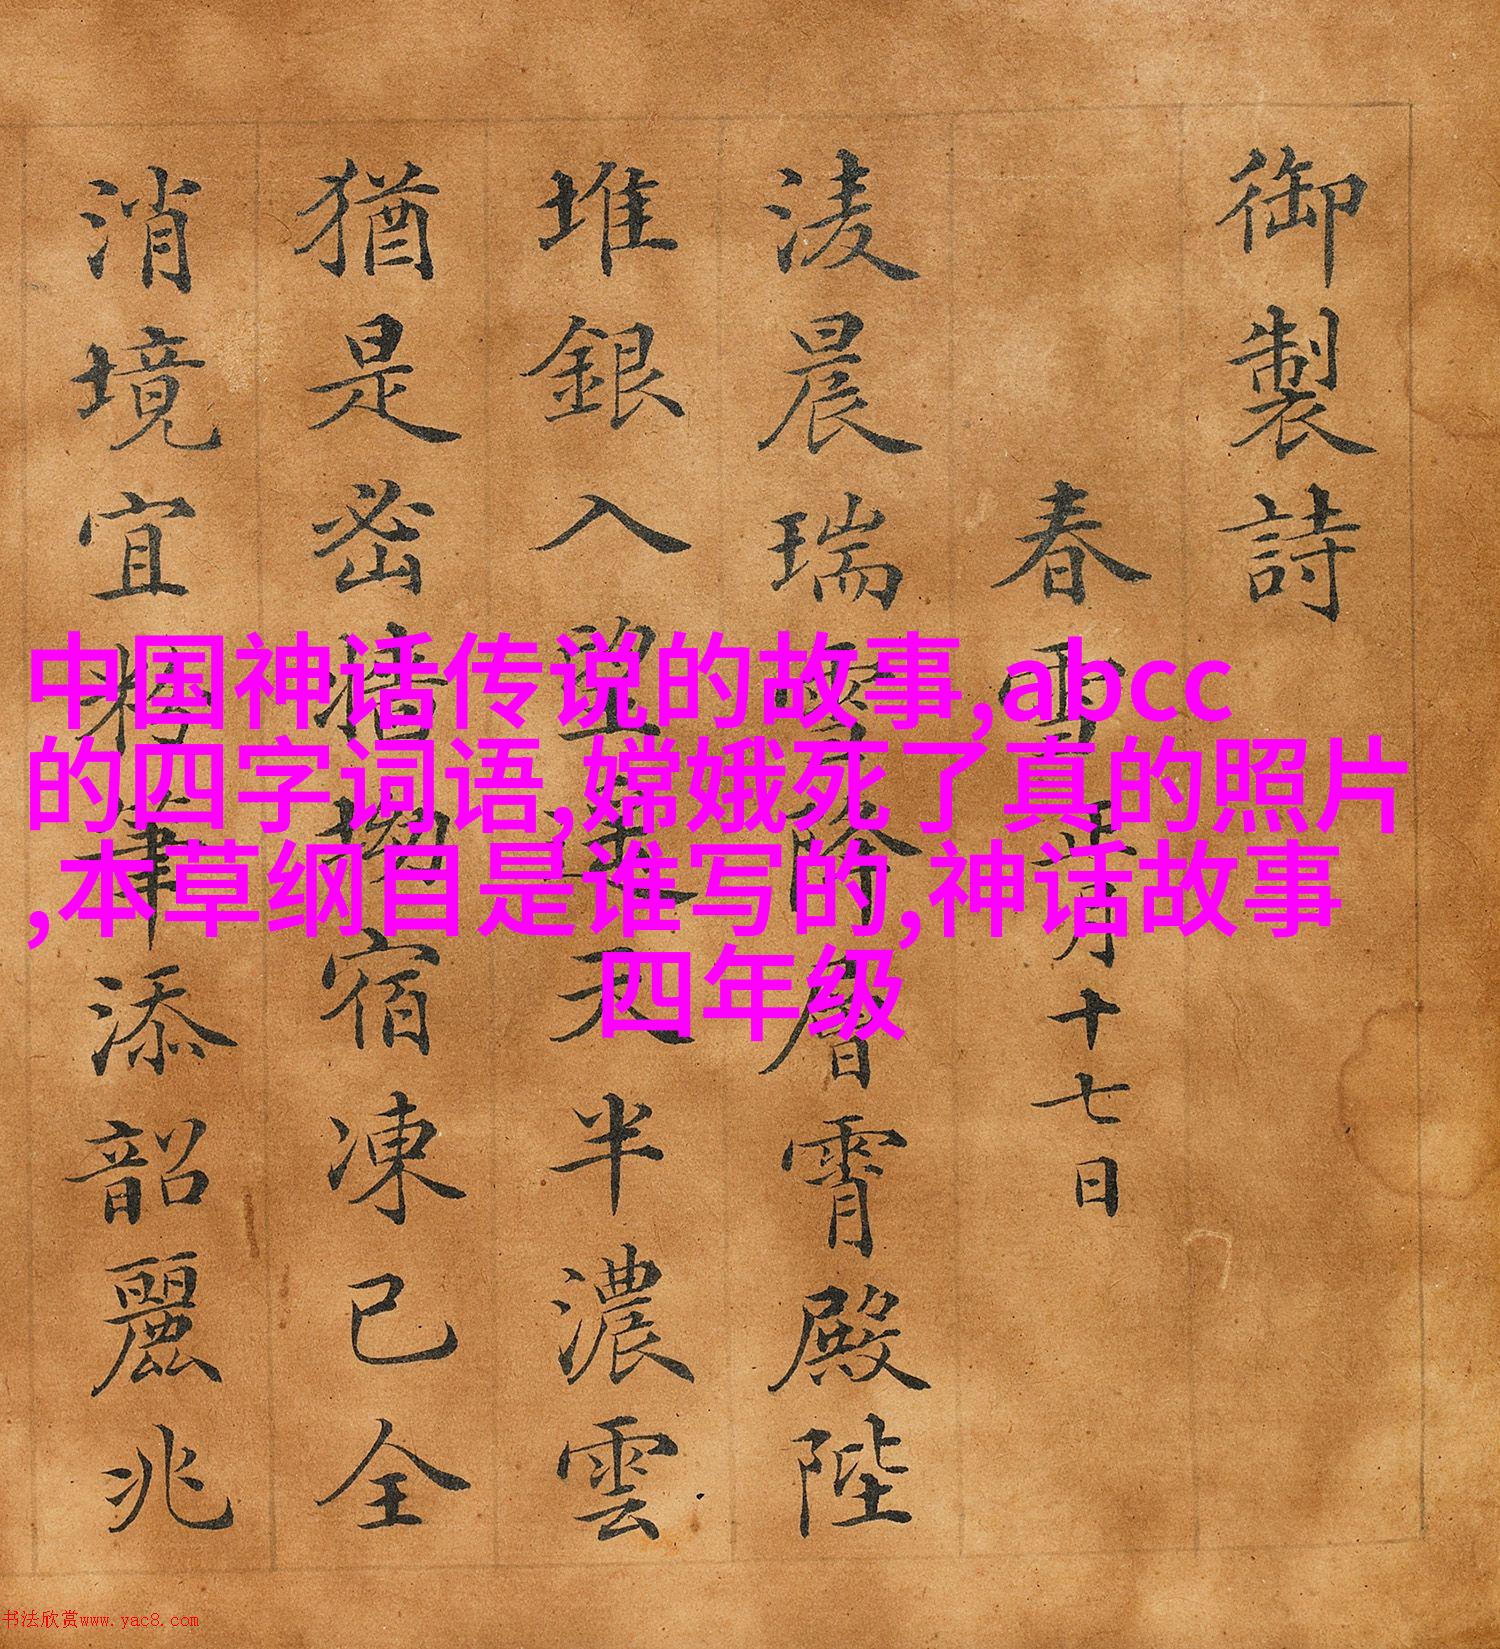 御製詩
春雪 月十七日
淩晨瑞雪降層霄殿陛
堆銀入望天半濃雲
猶是密宿凍已全
消境宜筆添韶麗兆
中国神话传说的故事,abcc
的四字词语,嫦娥死了真的照片
,本草纲目是谁写的,神话故事
四年级
书法欣赏www.yac8.com